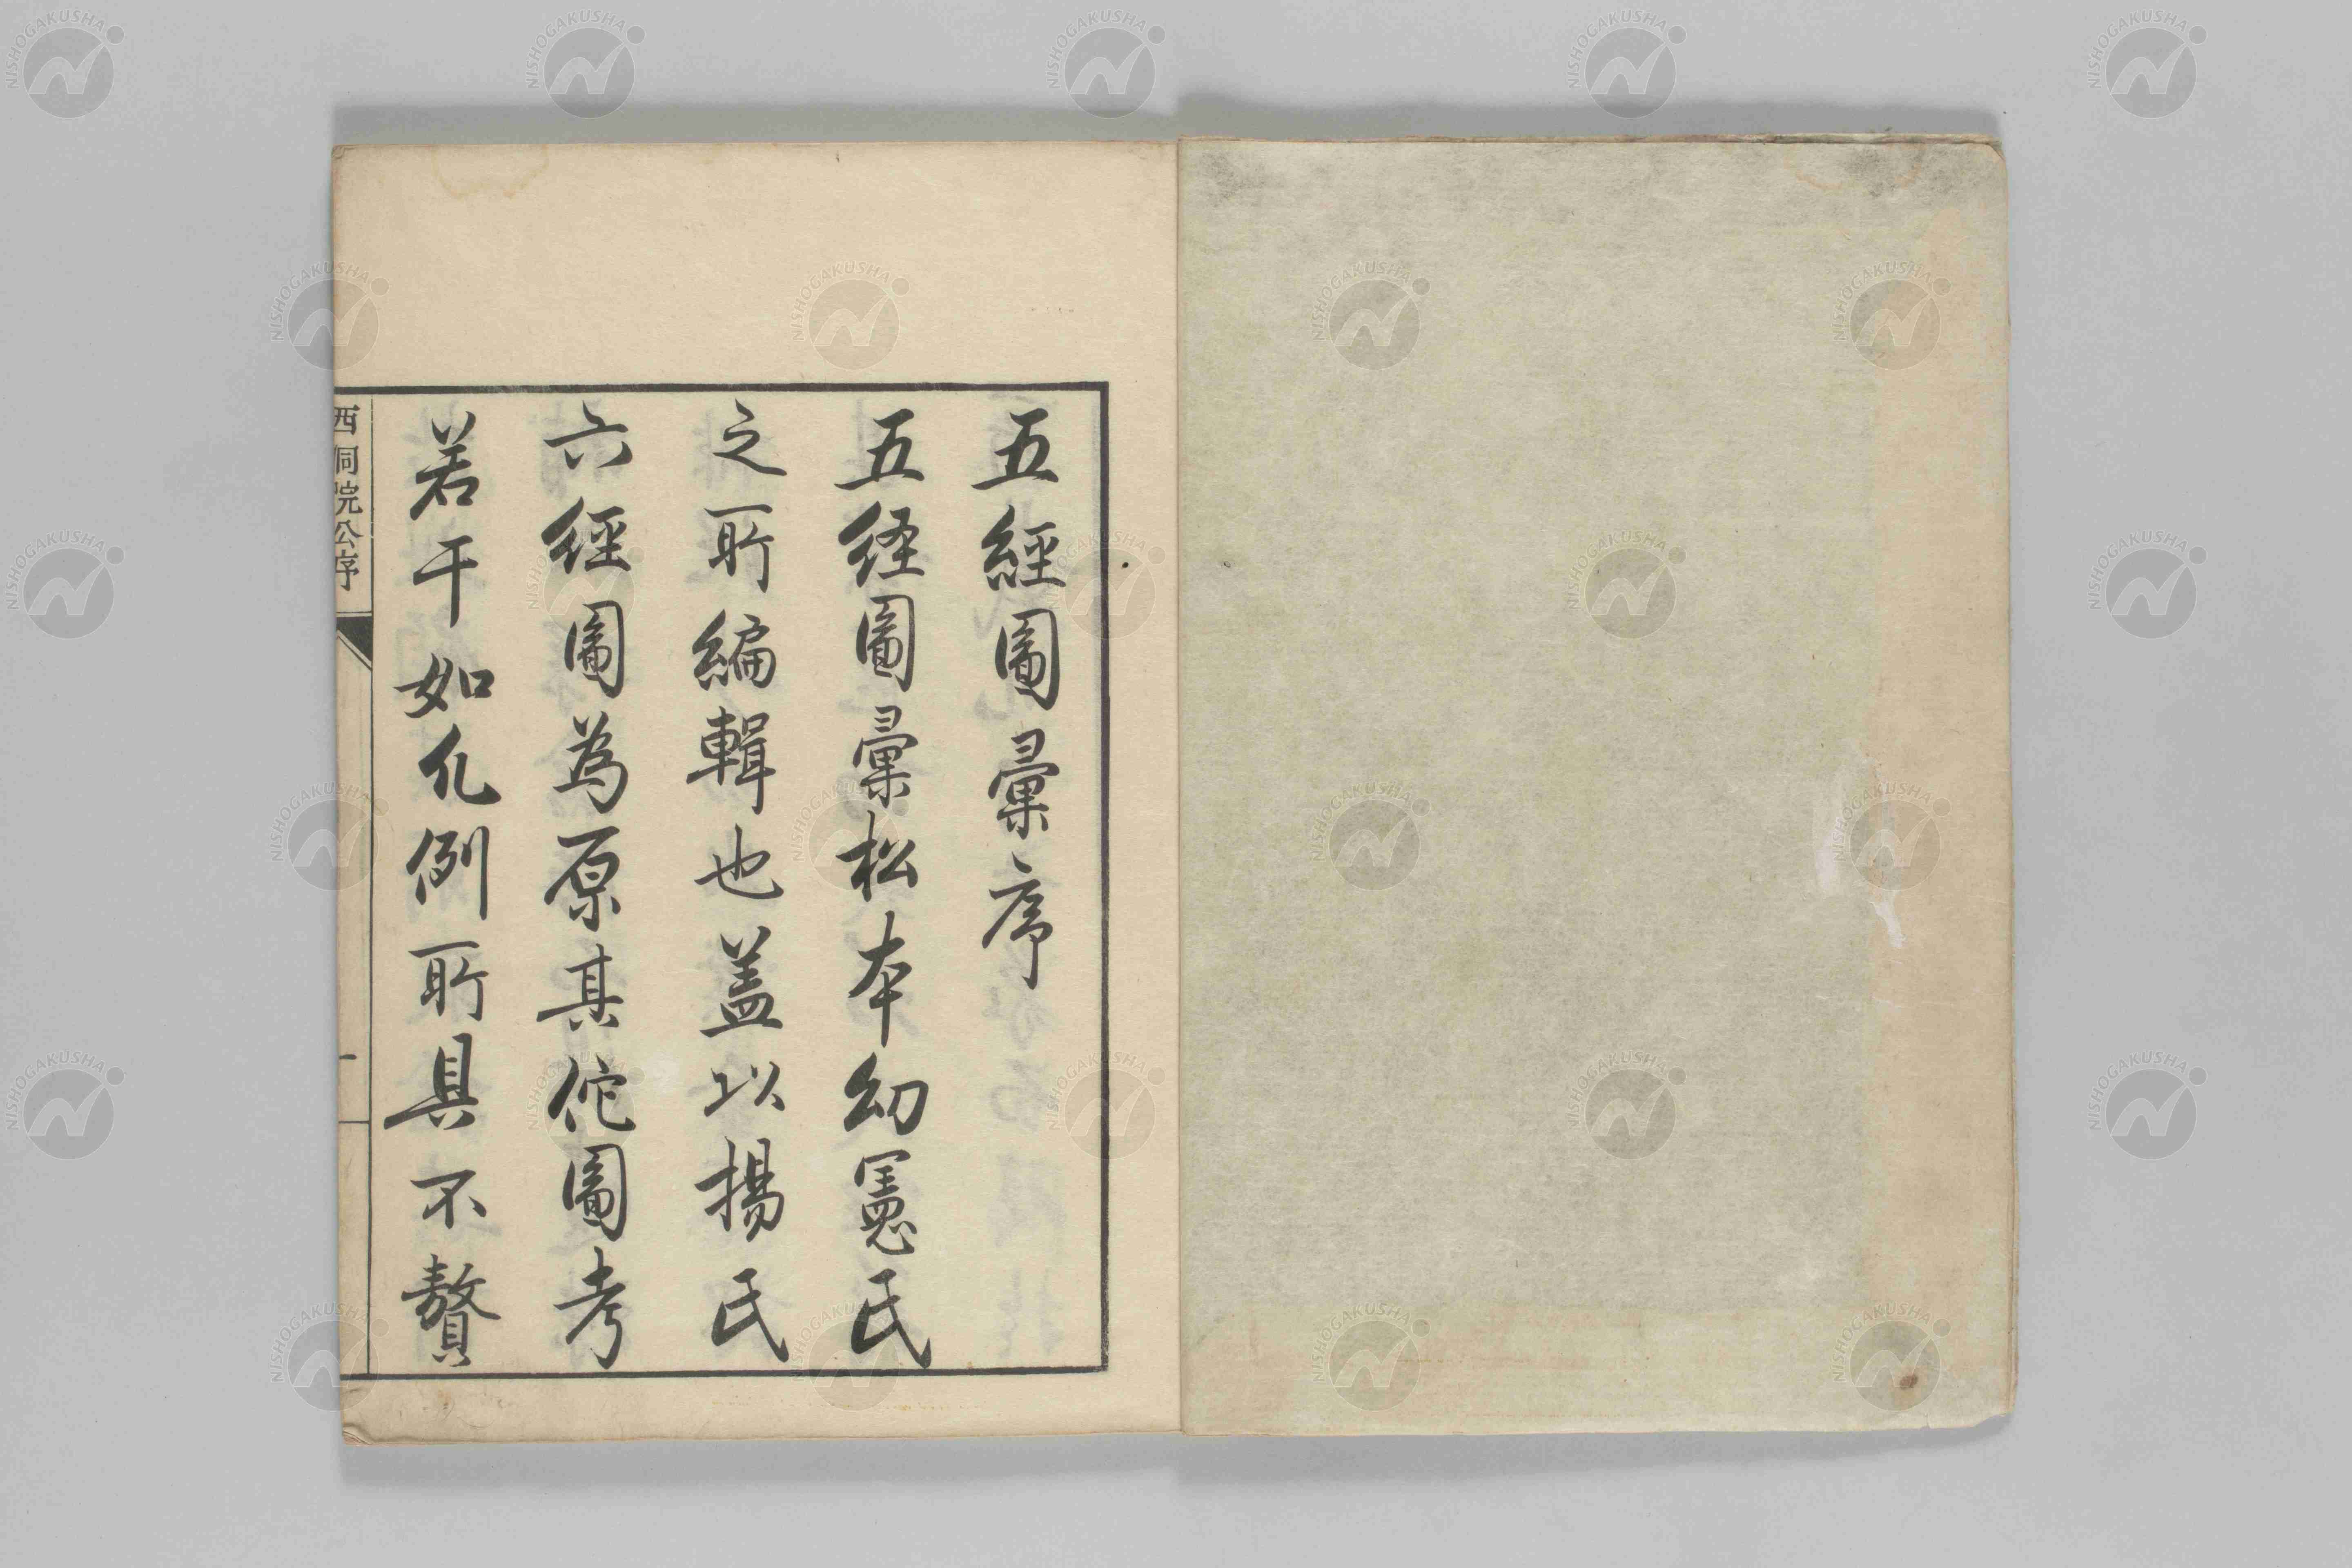 五經圖彙序
五経圖彙松本幼憲氏
之所編輯也蓋以楊氏
六經圖為原其佗圖考
若干如凡例所具不贅
西洞院公序
一
NISHOGAKUSHA